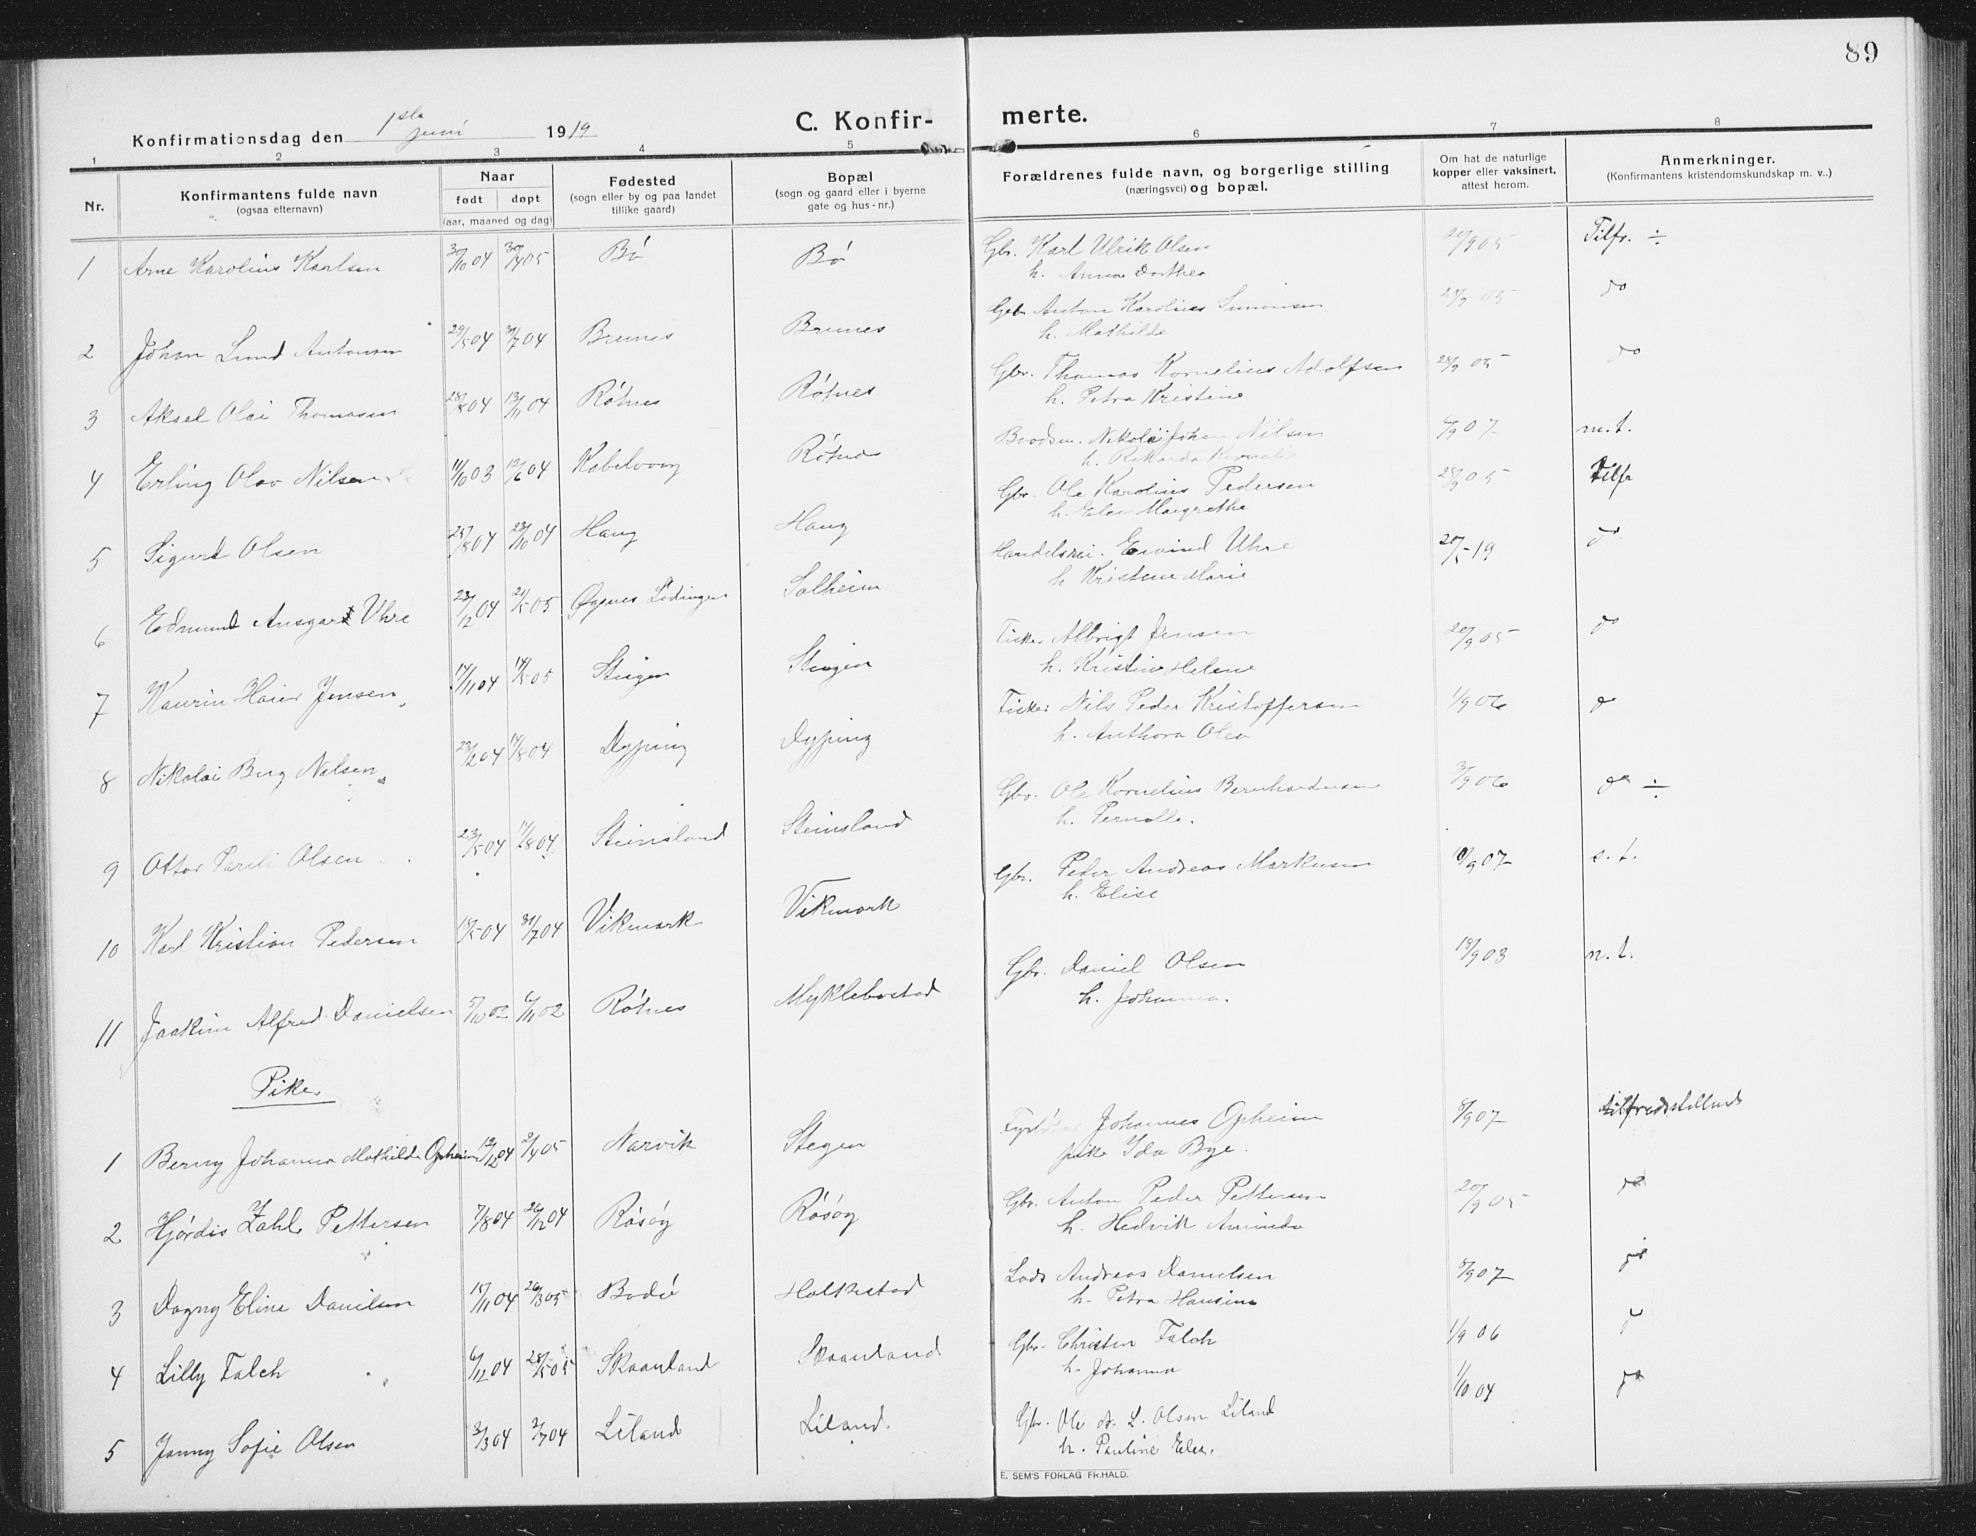 89
Konfirmationsdag den 1ste juni 1919
C. Konfirmerte.
1 2 3 4 5 6 7 8
Nr.
Konfirmantens fulde navn
(ogsaa efternavn)
Naar
født døpt
(aar, maaned og dag)
Fødested
(sogn eller by og paa landet
tillike gaard)
Bopæl
(sogn og gaard eller i byerne
gate og hus-nr.)
Forældrenes fulde navn, og borgerlige stilling
(næringsvei) og bopæl.
Om hat de naturlige
kopper eller vaksinert,
attest herom.
Anmerkninger.
(Konfirmantens kristendomskundskap m. v..)
1 Arne Karolius Karlsen 30/10 04 30/4 05 Bø Bø Gbr. Karl Ulrik Olsen 20/9 05 Tilfr. ÷
h. Anna Dorthea
2 Johan Lund Antonsen 29/5 04 31/7 04 Brunes Brunes Gbr Anton Karolius Simonsen do
h. Mathilde
3 Aksel Olai Thomasen 28/8 04 13/11 04 Røtnes Røtnes Gbr. Thomas Kornelius Adolfsen 28/9 05 do
h. Petra Kristine
4 Erling Olav Nilsen 11/10 03 12/6 04 Kabelvaag Røtnes Nikolai Johan Nilsen 6/9 07 m.t.
h. Rikarda
5 Sigurd Olsen 25/8 04 23/10 04 Haug Haug Gbr. Ole Karolius Pedersen 28/9 05 Tilfr
h. Elen Margrethe
6 Edmund Ansgar Uhre 23/12 04 21/5 05 Øgsnes Lødingen Solheim Handelsrei. Eivind Uhre 20/5 19 do
h. Kristine Marie
7 Kaurin Haier Jensen 17/11 04 14/5 05 Steigen Steigen Fisker Albrigt Jensen 20/9 05 do
h. Kristine Helene
8 Nikolai Berg Nilsen 23/2 04 14/8 04 Dyping Dyping Fisker Nils Peder Kristoffersen 1/9 06 do
h. Anthora Olea
9 Ottar Pareli Olsen 23/5 04 14/8 04 Steinsland Steinsland Gbr. Ole Kornelius Bernhardsen 3/9 06 do ÷
h. Pernille.
10 Karl Kristian Pedersen 15/5 04 31/7 04 Vikmark Vikmark Gbr. Peder Andreas Markusen 10/9 07 s. t.
h. Elise
11 Joakim Alfred Danielsen 5/10 02 6/11 02 Røtnes Myklebostad Gbr. Daniel Olsen 18/9 03 n. t.
h. Johanna.
Piker
1 Berny Johanna Mathilde Opheim 12/12 04 2/4 05 Narvik Stegen Johannes Opheim 8/9 07 tilfredsstillende
pike Ida Bye.
2 Hjørdis Zahl Pettersen 7/8 04 26/12 04 Røsøy Røsøy Gbr. Anton Peder Pettersen 20/9 05 do
h. Hedvik Aminda
3 Dagny Eline Danilsen 15/11 04 26/3 05 Bodø Holkestad Lods Andreas Danielsen 8/9 07 do
h. Petra Hansine
4 Lilly Falch 6/12 04 28/5 05 Skaanland Skaanland Gbr. Christen Falch 1/9 06 do
h. Johanna
5 Jenny Sofie Olsen 3/3 04 3/7 04 Liland Liland. Gbr. Ole L. Olsen Liland 1/10 04 do
h. Pauline Elea.
E. SEM'S FORLAG FR.HALD.